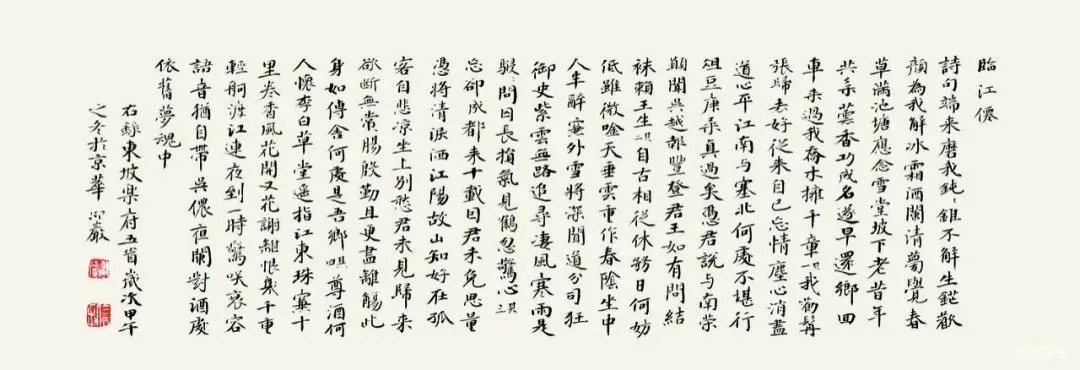 臨江僊
詩句端来磨我鈍〻錐不解生鋩歡
顏為我解冰霜酒闌清夢覺春
草滿池塘應念雪堂坡下老昔年
共采蕓香功成名遂早還鄉回
車来過我喬木擁千章其一我勸髯
張歸去好從来自己忘情塵心消盡
道心平江南与塞北何處不堪行
俎豆庚桑真過矣憑君說与南荣
願聞吳越報豐登君王如有問結
袜賴王生其二自古相從休務日何妨
低唱微唫天垂雲重作春陰坐中
人半醉簾外雪將深聞道分司狂
御史紫雲無路追尋凄風寒雨是
駸〻問囚長損氣見鶴忽驚心其三
忘卻成都来十載因君未免思量
憑將清淚洒江陽故山知好在孤
客自悲凉坐上別愁君未見歸来
欲斷無常腸殷勤且更盡離觴此
身如傳舍何處是吾鄉其四尊酒何
人懷李白草堂遥指江東珠簾十
里卷香風花開又花謝離恨幾千重
輕舸渡江連夜到一時驚咲衰容
語音猶自帶吳儂夜闌對酒處
依舊夢魂中
右錄東坡樂府五首歲次甲午
之冬於京華